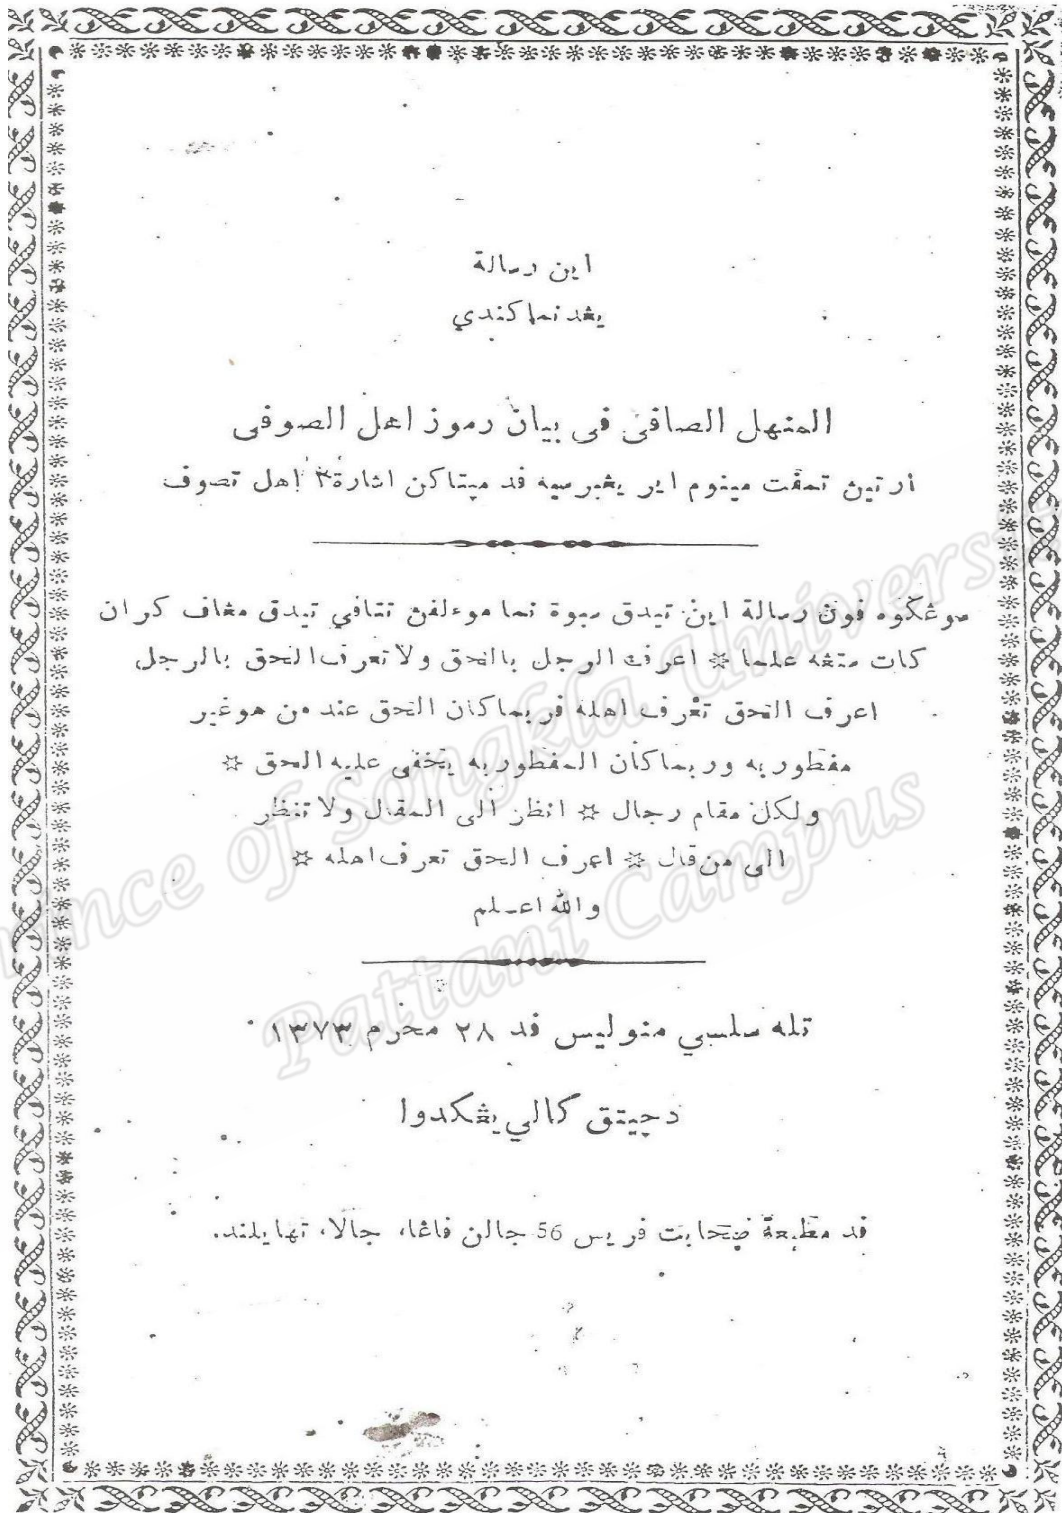 اين رسالة
يڠدنماكندي
المنهل الصافى فى بيان رموز اهل الصوفى
ارتين تمڤت مينوم اير يڠبرسيه ڤد مپتاكن اشارة٢ اهل تصوف
سوڠڬوه ڤون رسالة اين تيدق سبوة نما موءلفن تتافي تيدق مڠاڤ كران
كات ستڠه علما ☆ اعرف الرجل بالحق ولا تعرف الحق بالرجل
اعرف الحق تعرف اهله فربما كان الحق عند من هو غير
مفطور به وربما كان المفطور به يخفى عليه الحق ☆
ولكل مقام رجال ☆ انظر الى المقال ولا تنظر
الى من قال ☆ اعرف الحق تعرف اهله ☆
والله اعلم
تله سلسي منوليس ڤد ٢٨ محرم ١٣٧٣
دچيتق كالي يڠكدوا
ڤد مطبعة ڤريس 56 جالن جالا، تهايلند.
Prince of Songkla University
Pattani Campus